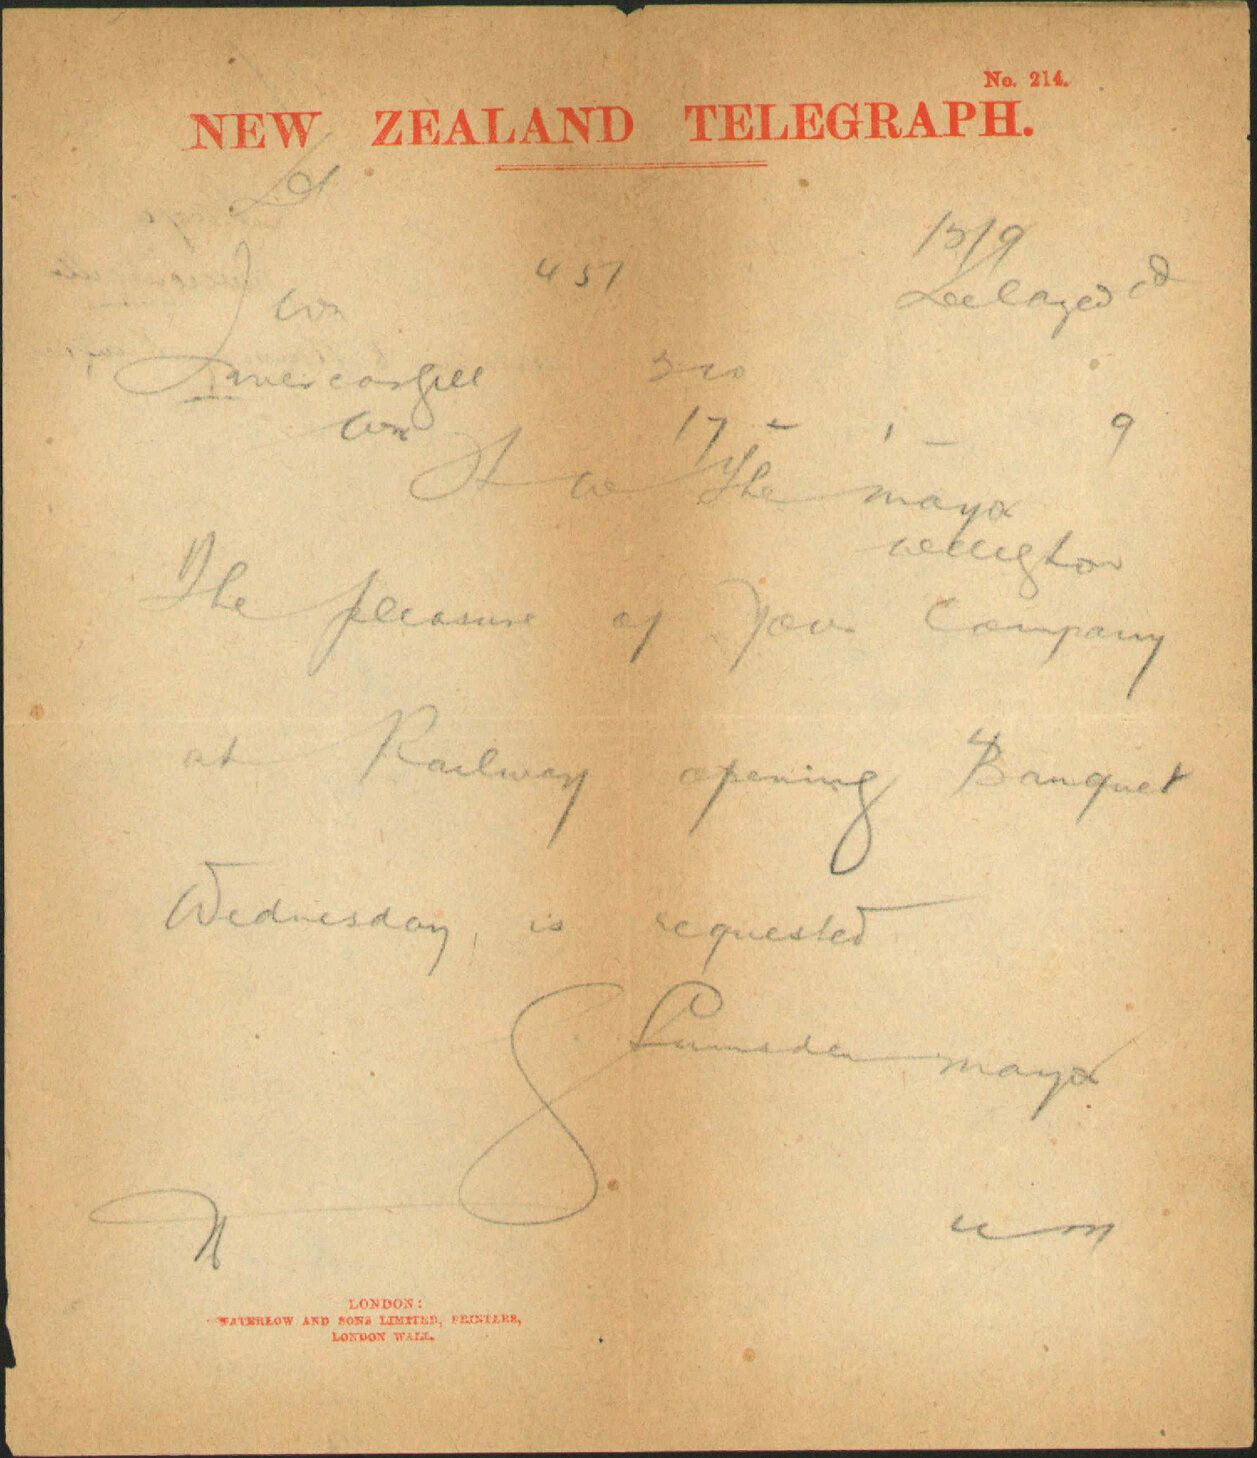 No. 214.
NEW ZEALAND TELEGRAPH.
457
Delayed
Invercargill
17 - 1 - 9
The mayor
Wellington
The pleasure of your Company
at Railway opening Banquet
Wednesday, is requested
Lumsden mayor
LONDON:
WATERLOW AND SONS LIMITED, PRINTERS,
LONDON WALL.